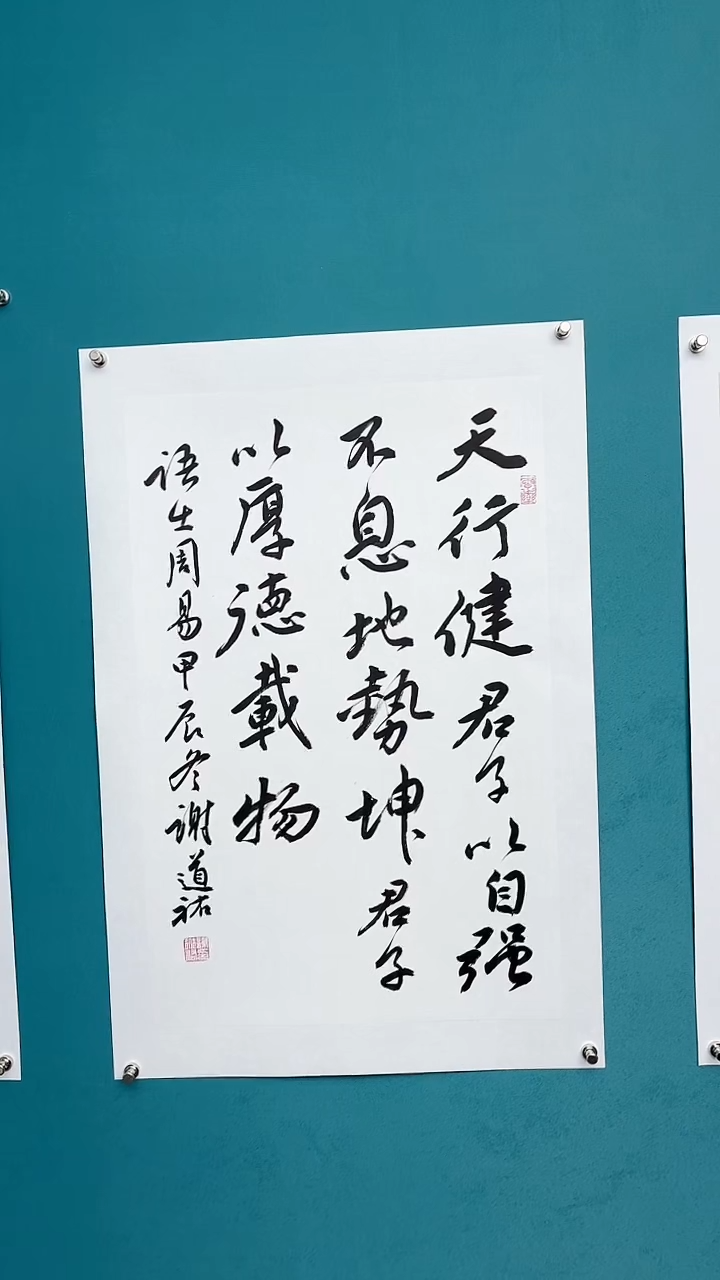 天行健君子以自强
不息地勢坤君子
以厚德載物
语出周易甲辰冬谢道祐